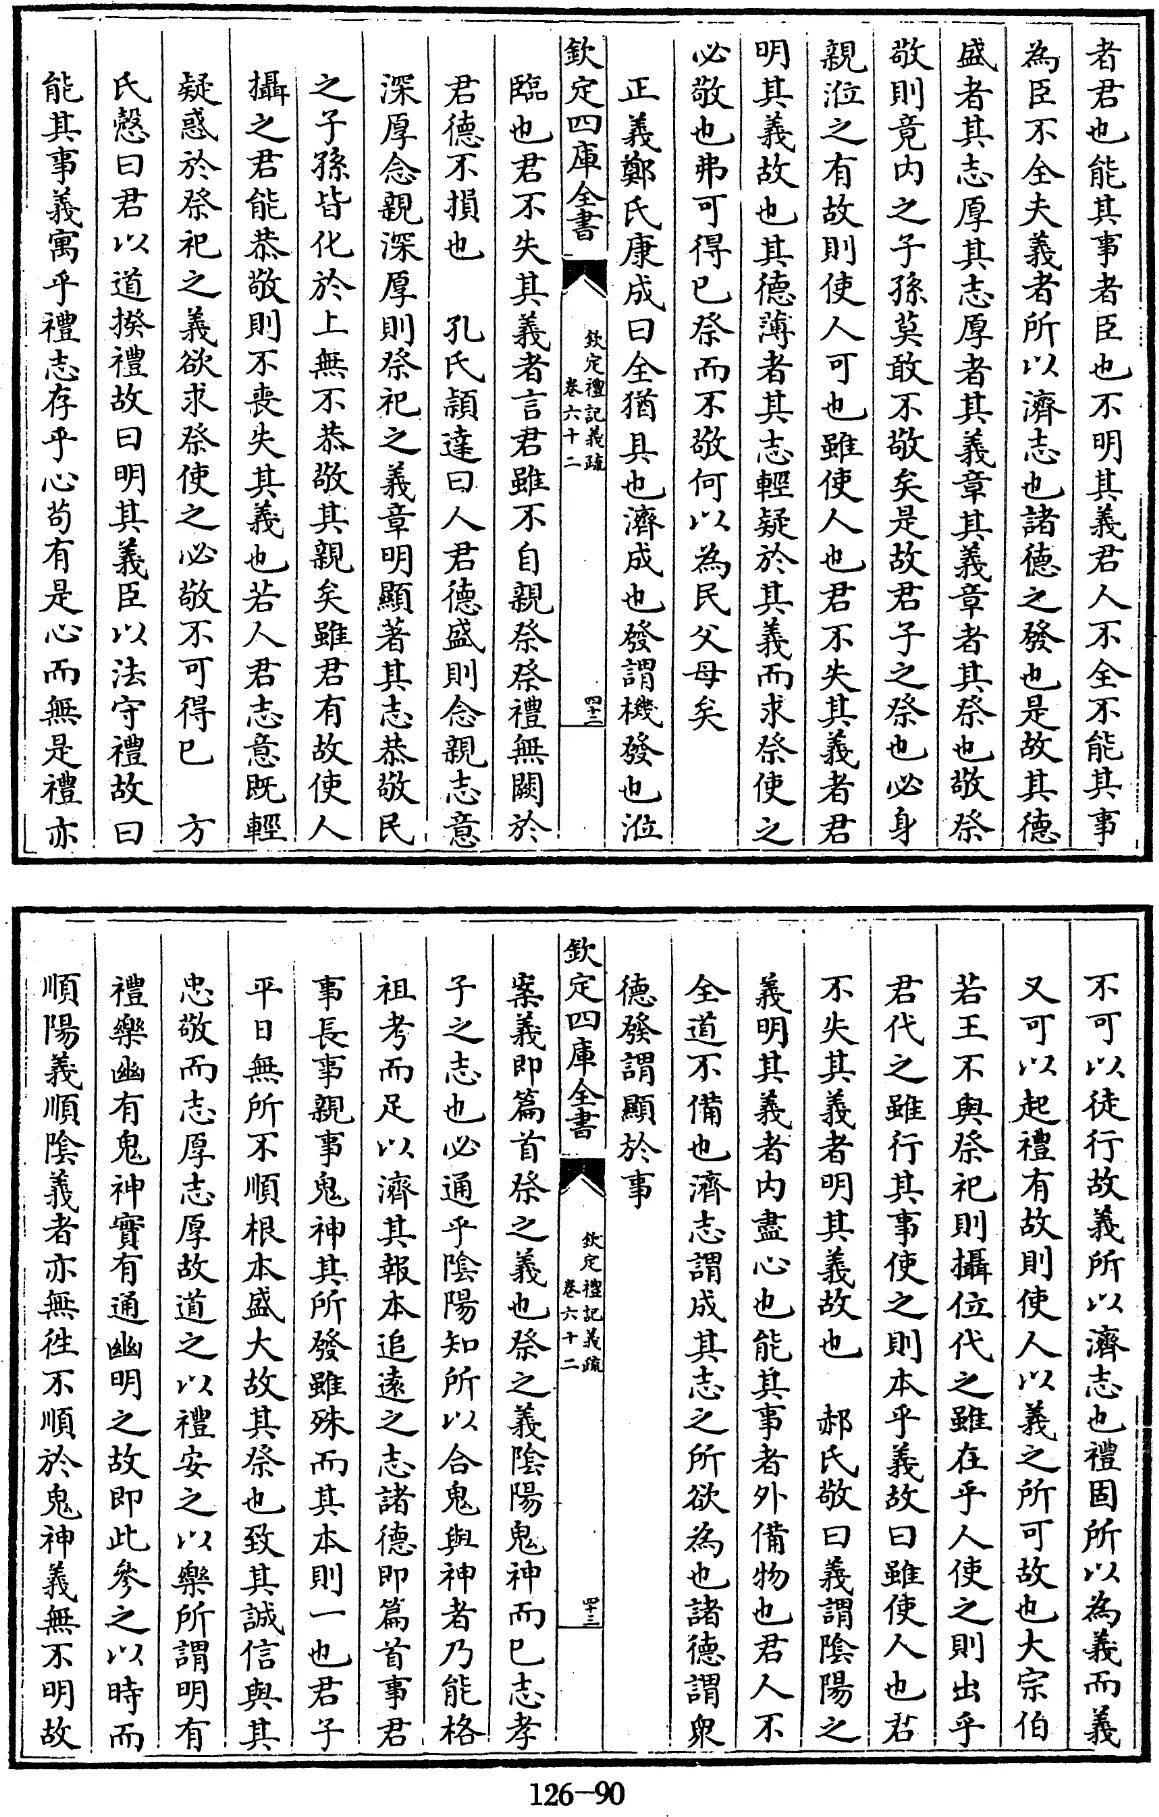 者君也能其事者臣也不明其義君人不全不能其事
為臣不全夫義者所以濟志也諸德之發也是故其德
盛者其志厚其志厚者其義章其義章者其祭也敬祭
敬則竟内之子孫莫敢不敬矣是故君子之祭也必身
親涖之有故則使人可也雖使人也君不失其義者君
明其義故也其德薄者其志輕疑於其義而求祭使之
必敬也弗可得已祭而不敬何以為民父母矣
正義鄭氏康成曰全猶具也濟成也發謂機發也涖
欽定四庫全書
欽定禮記義疏
卷六十二
四十二
臨也君不失其義者言君雖不自親祭祭禮無闕於
君德不損也 孔氏頴達曰人君德盛則念親志意
深厚念親深厚則祭祀之義章明顯著其志恭敬民
之子孫皆化於上無不恭敬其親矣雖君有故使人
攝之君能恭敬則不喪失其義也若人君志意既輕
疑惑於祭祀之義欲求祭使之必敬不可得已 方
氏慤曰君以道揆禮故曰明其義臣以法守禮故曰
能其事義寓乎禮志存乎心苟有是心而無是禮亦
不可以徒行故義所以濟志也禮固所以為義而義
又可以起禮有故則使人以義之所可故也大宗伯
若王不與祭祀則攝位代之雖在乎人使之則出乎
君代之雖行其事使之則本乎義故曰雖使人也君
不失其義者明其義故也 郝氏敬曰義謂陰陽之
義明其義者内盡心也能其事者外備物也君人不
全道不備也濟志謂成其志之所欲為也諸德謂衆
德發謂顯於事
欽定四庫全書
欽定禮記義疏
卷六十二
四十三
案義即篇首祭之義也祭之義陰陽鬼神而已志孝
子之志也必通乎陰陽知所以合鬼與神者乃能格
祖考而足以濟其報本追遠之志諸德即篇首事君
事長事親事鬼神其所發雖殊而其本則一也君子
平日無所不順根本盛大故其祭也致其誠信與其
忠敬而志厚志厚故道之以禮安之以樂所謂明有
禮樂幽有鬼神實有通幽明之故即此參之以時而
順陽義順陰義者亦無徃不順於鬼神義無不明故
126-90